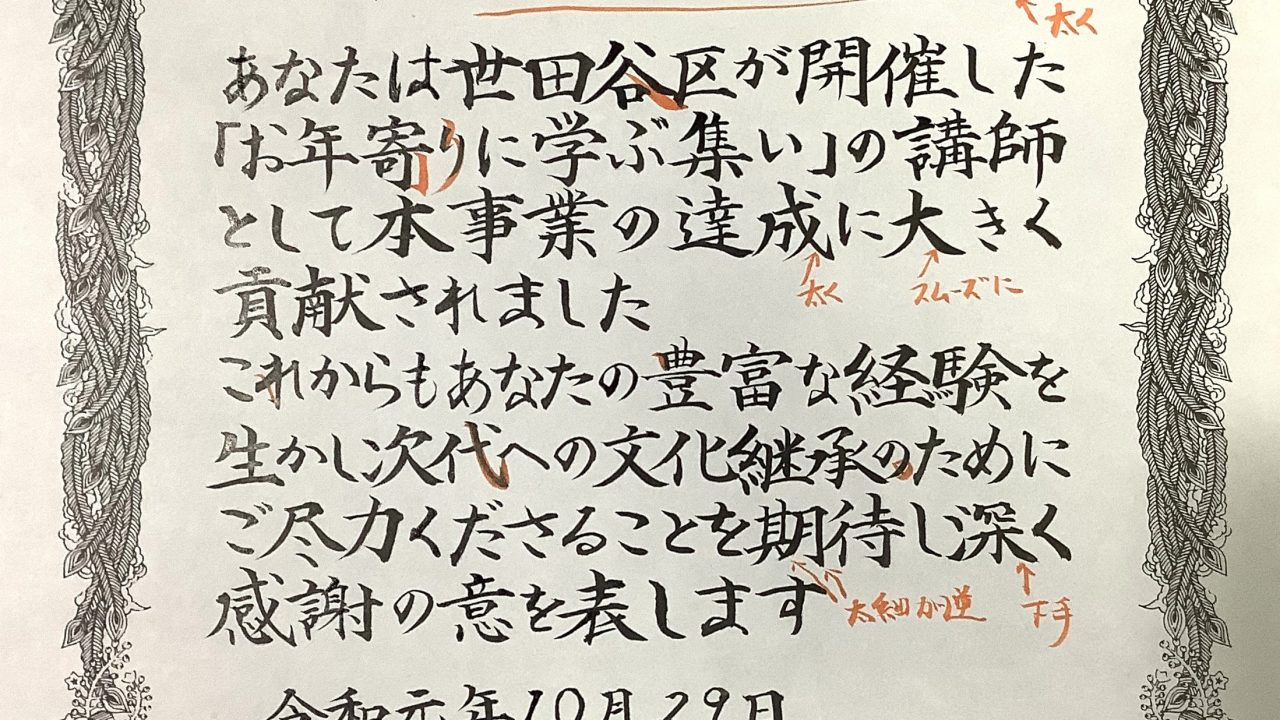 太く
あなたは世田谷区が開催した
「お年寄りに学ぶ集い」の講師
として本事業の達成に大きく
太く
スムーズに
貢献されました
これからもあなたの豊富な経験を
生かし次代への文化継承のために
ご尽力くださることを期待し深く
感謝の意を表します
太細が逆
下手
令和元年10月29日